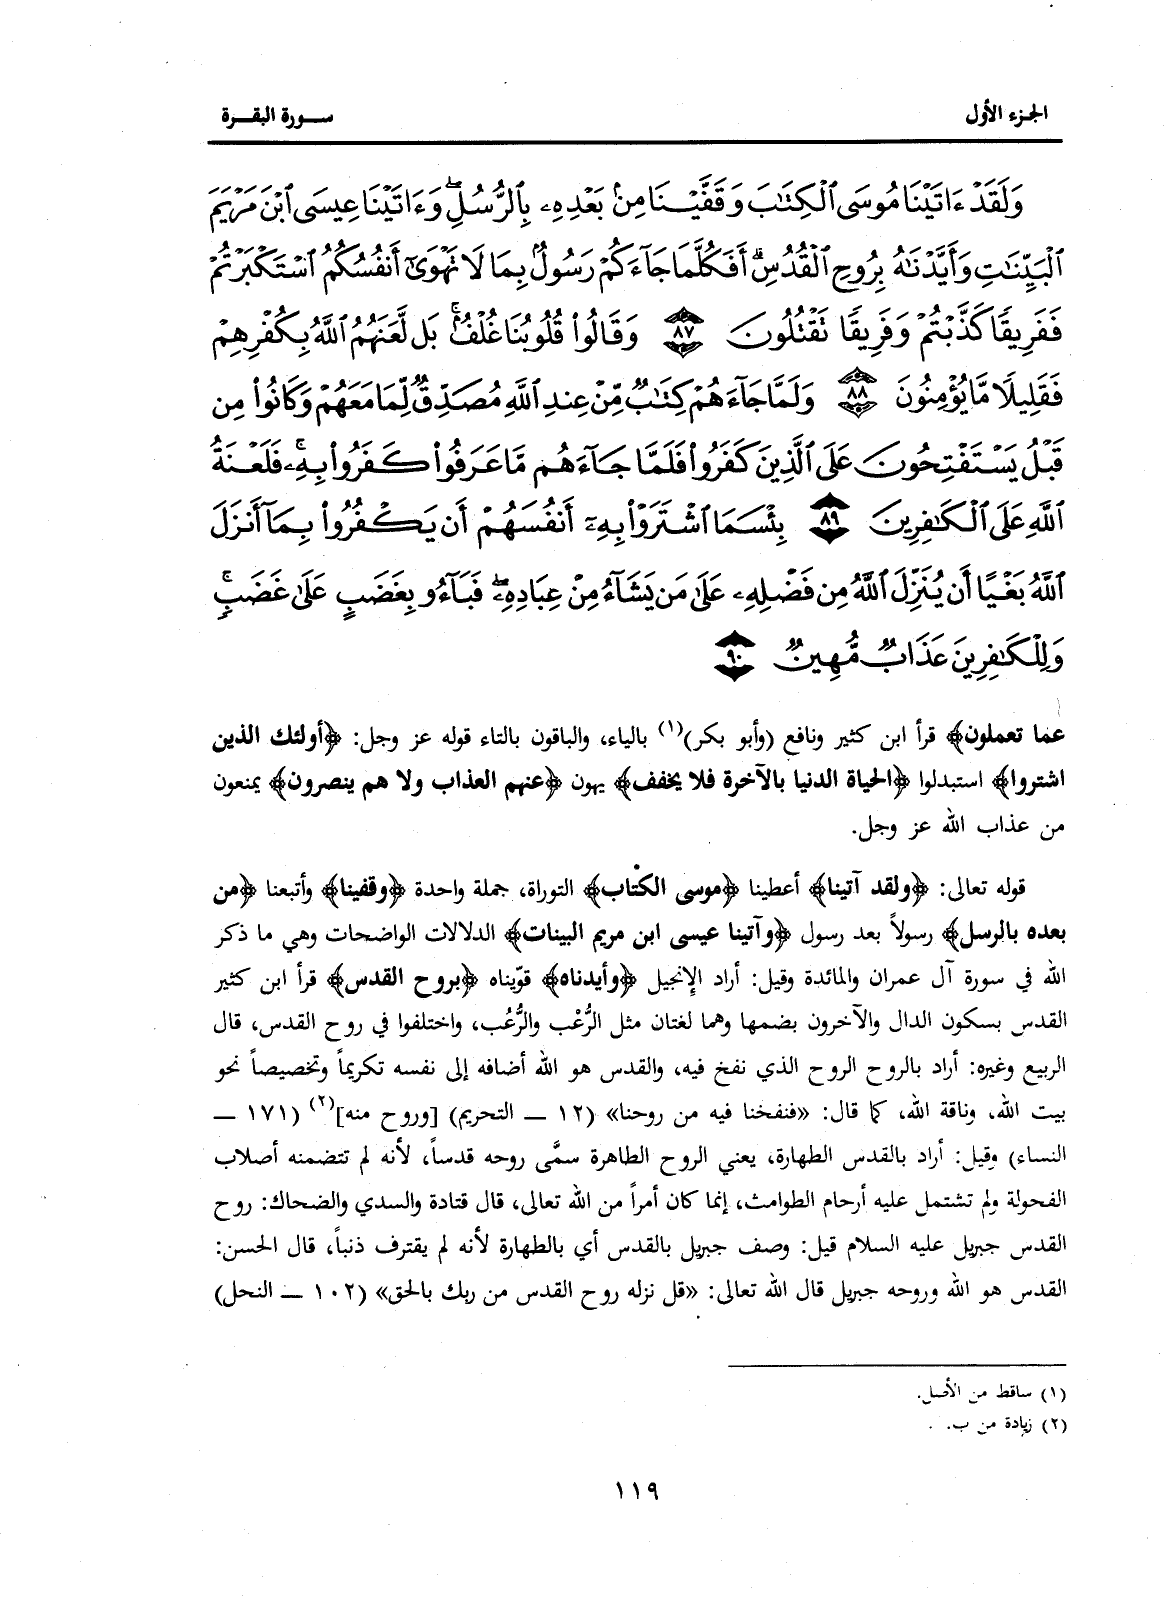 الجزء الأول
سورة البقرة
وَلَقَدْ ءَاتَيْنَا مُوسَى ٱلْكِتَٰبَ وَقَفَّيْنَا مِنۢ بَعْدِهِۦ بِٱلرُّسُلِۖ وَءَاتَيْنَا عِيسَى ٱبْنَ مَرْيَمَ
ٱلْبَيِّنَٰتِ وَأَيَّدْنَٰهُ بِرُوحِ ٱلْقُدُسِۗ أَفَكُلَّمَا جَآءَكُمْ رَسُولٌۢ بِمَا لَا تَهْوَىٰٓ أَنفُسُكُمُ ٱسْتَكْبَرْتُمْ
فَفَرِيقًا كَذَّبْتُمْ وَفَرِيقًا تَقْتُلُونَ ٨٧ وَقَالُوا۟ قُلُوبُنَا غُلْفٌۢۚ بَل لَّعَنَهُمُ ٱللَّهُ بِكُفْرِهِمْ
فَقَلِيلًا مَّا يُؤْمِنُونَ ٨٨ وَلَمَّا جَآءَهُمْ كِتَٰبٌ مِّنْ عِندِ ٱللَّهِ مُصَدِّقٌ لِّمَا مَعَهُمْ وَكَانُوا۟ مِن
قَبْلُ يَسْتَفْتِحُونَ عَلَى ٱلَّذِينَ كَفَرُوا۟ فَلَمَّا جَآءَهُم مَّا عَرَفُوا۟ كَفَرُوا۟ بِهِۦۚ فَلَعْنَةُ
ٱللَّهِ عَلَى ٱلْكَٰفِرِينَ ٨٩ بِئْسَمَا ٱشْتَرَوْا۟ بِهِۦٓ أَنفُسَهُمْ أَن يَكْفُرُوا۟ بِمَآ أَنزَلَ
ٱللَّهُ بَغْيًا أَن يُنَزِّلَ ٱللَّهُ مِن فَضْلِهِۦ عَلَىٰ مَن يَشَآءُ مِنْ عِبَادِهِۦۖ فَبَآءُو بِغَضَبٍ عَلَىٰ غَضَبٍۚ
وَلِلْكَٰفِرِينَ عَذَابٌ مُّهِينٌ ٩٠
عما تعملون﴾ قرأ ابن كثير ونافع (وأبو بكر)(١) بالياء، والباقون بالتاء قوله عز وجل: ﴿أولئك الذين
اشتروا﴾ استبدلوا ﴿الحياة الدنيا بالآخرة فلا يخفف﴾ يهون ﴿عنهم العذاب ولا هم ينصرون﴾ يمنعون
من عذاب الله عز وجل.
قوله تعالى: ﴿ولقد آتينا﴾ أعطينا ﴿موسى الكتاب﴾ التوراة، جملة واحدة ﴿وقفينا﴾ وأتبعنا ﴿من
بعده بالرسل﴾ رسولاً بعد رسول ﴿وآتينا عيسى ابن مريم البينات﴾ الدلالات الواضحات وهي ما ذكر
الله في سورة آل عمران والمائدة وقيل: أراد الإنجيل ﴿وأيدناه﴾ قوّيناه ﴿بروح القدس﴾ قرأ ابن كثير
القدس بسكون الدال والآخرون بضمها وهما لغتان مثل الرُّعْب والرُّعُب، واختلفوا في روح القدس، قال
الربيع وغيره: أراد بالروح الروح الذي نفخ فيه، والقدس هو الله أضافه إلى نفسه تكريماً وتخصيصاً نحو
بيت الله، وناقة الله، كما قال: «فنفخنا فيه من روحنا» (١٢ ــ التحريم) [وروح منه](٢) (١٧١ ــ
النساء) وقيل: أراد بالقدس الطهارة، يعني الروح الطاهرة سمَّى روحه قدساً، لأنه لم تتضمنه أصلاب
الفحولة ولم تشتمل عليه أرحام الطوامث، إنما كان أمراً من الله تعالى، قال قتادة والسدي والضحاك: روح
القدس جبريل عليه السلام قيل: وصف جبريل بالقدس أي بالطهارة لأنه لم يقترف ذنباً، قال الحسن:
القدس هو الله وروحه جبريل قال الله تعالى: «قل نزله روح القدس من ربك بالحق» (١٠٢ ــ النحل)
(١) ساقط من الأصل.
(٢) زيادة من ب.
١١٩